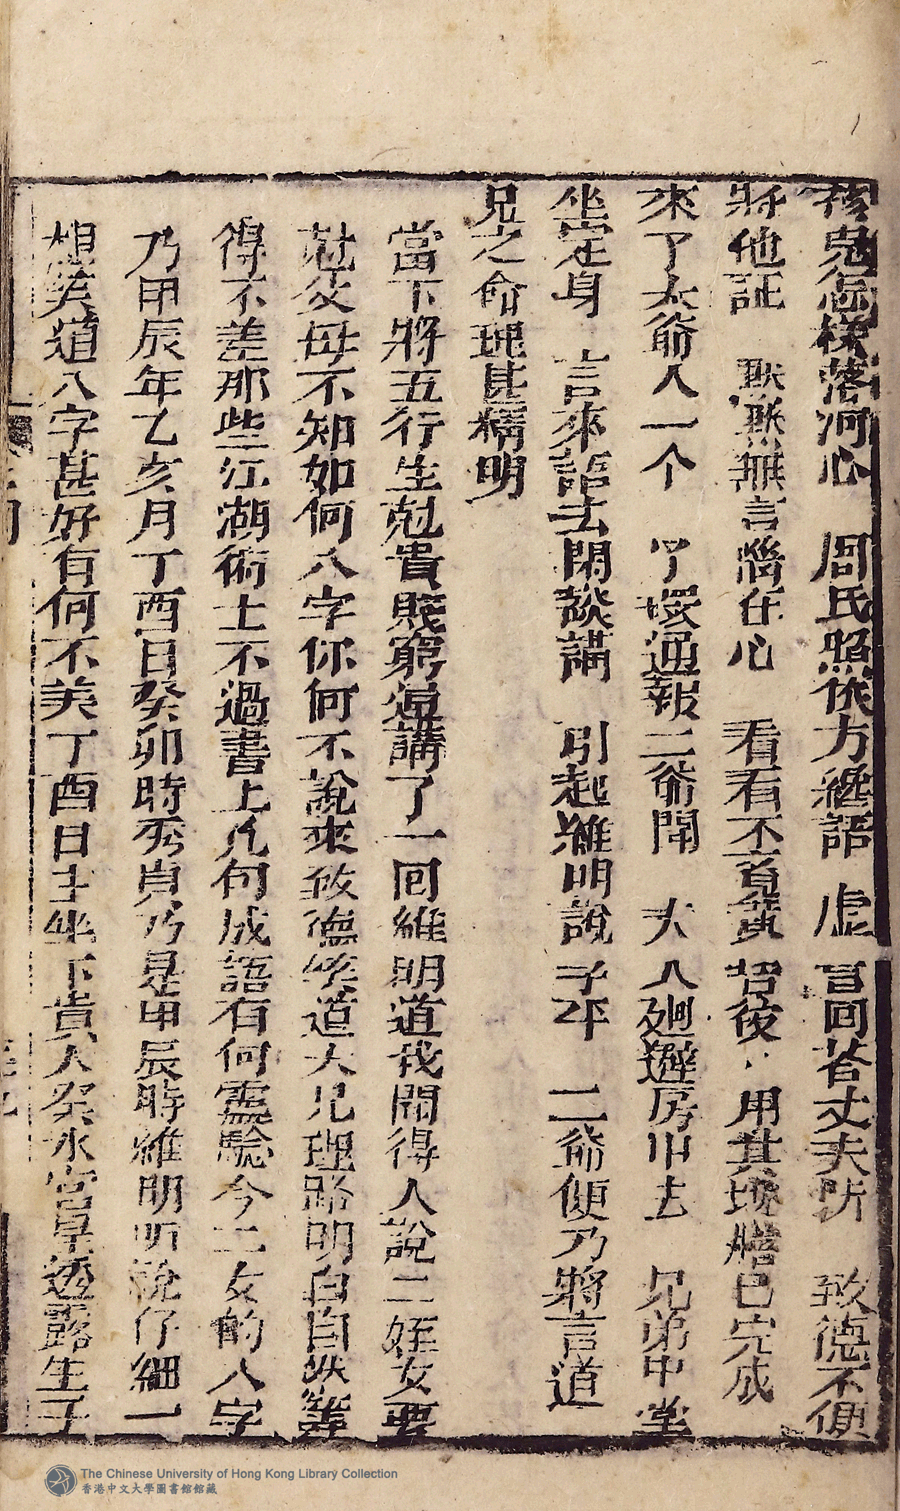 孩兒怎樣落河心　周氏照依方纔語　虛言回荅丈夫听　致德不便
將他証　默默無言濟在心　看看不覺黄昏後　用其塊膳已完成
來了太爺人一个　了环通報二爺聞　夫人廻避房中去　兄弟中堂
坐定身　言來語去閑談講　引起維明說子平　二爺便乃將言道
兄之命理甚精明
當下將五行生尅貴賤窮通講了一回維明道我聞得人說二姪女要
尅父母不知如何八字你何不說來致德笑道大兄理路明白自然算
得不差那些江湖術士不過書上几句成語有何靈驗今二女的八字
乃甲辰年乙亥月丁酉日癸卯時秀貞乃是甲辰時維明听說仔細一
想笑道八字甚好有何不美丁酉日主坐下貴人癸水官星透露生于
The Chinese University of Hong Kong Library Collection
香港中文大學圖書館館藏